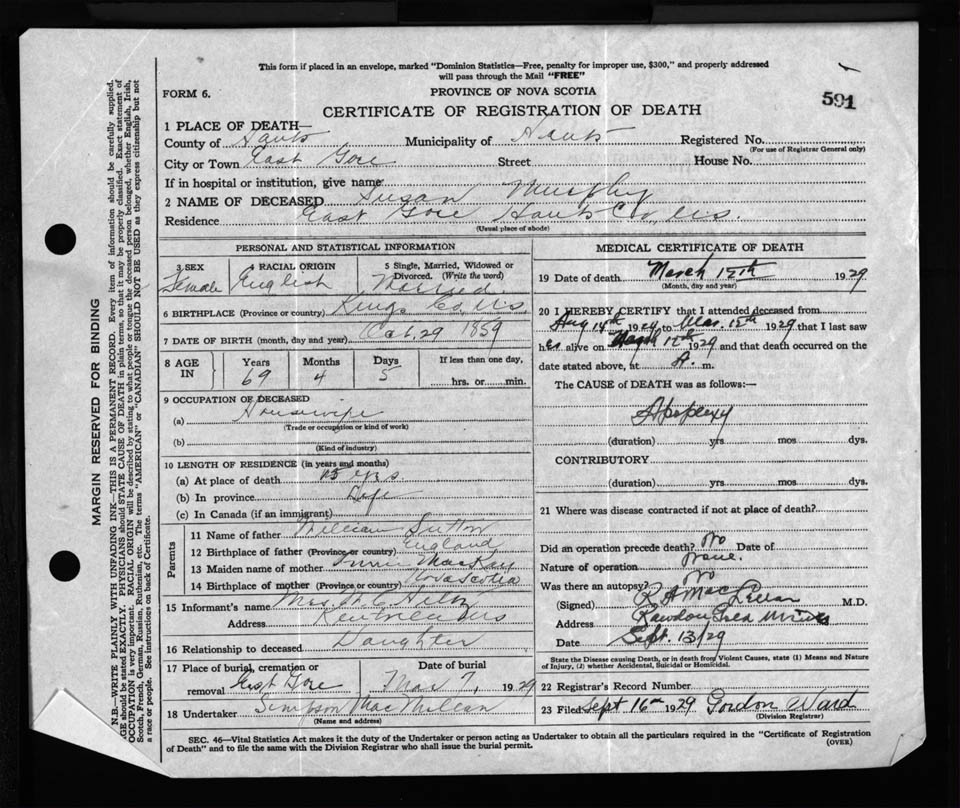 This form if placed in an envelope, marked "Dominion Statistics—Free, penalty for improper use, $300," and properly addressed
will pass through the Mail "FREE"
FORM 6.
PROVINCE OF NOVA SCOTIA
591
CERTIFICATE OF REGISTRATION OF DEATH
1 PLACE OF DEATH—
County of Hants Municipality of Hants Registered No.
(For use of Registrar General only)
City or Town East Gore Street House No.
If in hospital or institution, give name
2 NAME OF DECEASED Susan Murphy
Residence East Gore Hants Co., N.S.
(Usual place of abode)
PERSONAL AND STATISTICAL INFORMATION
3 SEX Female
4 RACIAL ORIGIN English
5 Single, Married, Widowed or Divorced. (Write the word) Married
6 BIRTHPLACE (Province or country) Kings Co., N.S.
7 DATE OF BIRTH (month, day and year) Oct. 29 1859
8 AGE IN Years 69 Months 4 Days 5 If less than one day, hrs. or min.
9 OCCUPATION OF DECEASED
(a) Housewife
(Trade or occupation or kind of work)
(b)
(Kind of industry)
10 LENGTH OF RESIDENCE (in years and months)
(a) At place of death yrs
(b) In province Life
(c) In Canada (if an immigrant)
Parents
11 Name of father William Sutton
12 Birthplace of father (Province or country) England
13 Maiden name of mother MacKay
14 Birthplace of mother (Province or country) Nova Scotia
15 Informant's name
Address
16 Relationship to deceased Daughter
17 Place of burial, cremation or removal East Gore Date of burial Mar 7, 1929
18 Undertaker Simpson MacMillan
(Name and address)
MEDICAL CERTIFICATE OF DEATH
19 Date of death March 1929
(Month, day and year)
20 I HEREBY CERTIFY that I attended deceased from
Aug 14th 19 to Mar. 1929 that I last saw
her alive on 1929 and that death occurred on the
date stated above, at A. m.
The CAUSE OF DEATH was as follows:—
Apoplexy
(duration) yrs mos dys.
CONTRIBUTORY
(duration) yrs. mos. dys.
21 Where was disease contracted if not at place of death?
Did an operation precede death? No Date of
Nature of operation None.
Was there an autopsy? No
(Signed) M.D.
Address Rawdon Gold Mines
Date Sept. 13/29
State the Disease causing Death, or in death from Violent Causes, state (1) Means and Nature
of Injury, (2) whether Accidental, Suicidal or Homicidal.
22 Registrar's Record Number
23 Filed Sept 16th 1929 Gordon Ward
(Division Registrar)
SEC. 46—Vital Statistics Act makes it the duty of the Undertaker or person acting as Undertaker to obtain all the particulars required in the "Certificate of Registration
of Death" and to file the same with the Division Registrar who shall issue the burial permit.
(OVER)
MARGIN RESERVED FOR BINDING
N.B.—WRITE PLAINLY WITH UNFADING INK—THIS IS A PERMANENT RECORD. Every item of information should be carefully supplied.
AGE should be stated EXACTLY. PHYSICIANS should STATE CAUSE OF DEATH in plain terms, so that it may be properly classified. Exact statement of
OCCUPATION is very important. RACIAL ORIGIN will be described by stating to what people or tongue the deceased person belonged, whether English, Irish,
Scotch, French, German, Russian, Ruthenian, etc. The terms "AMERICAN" or "CANADIAN" SHOULD NOT BE USED as they express citizenship but not
a race or people. See instructions on back of Certificate.